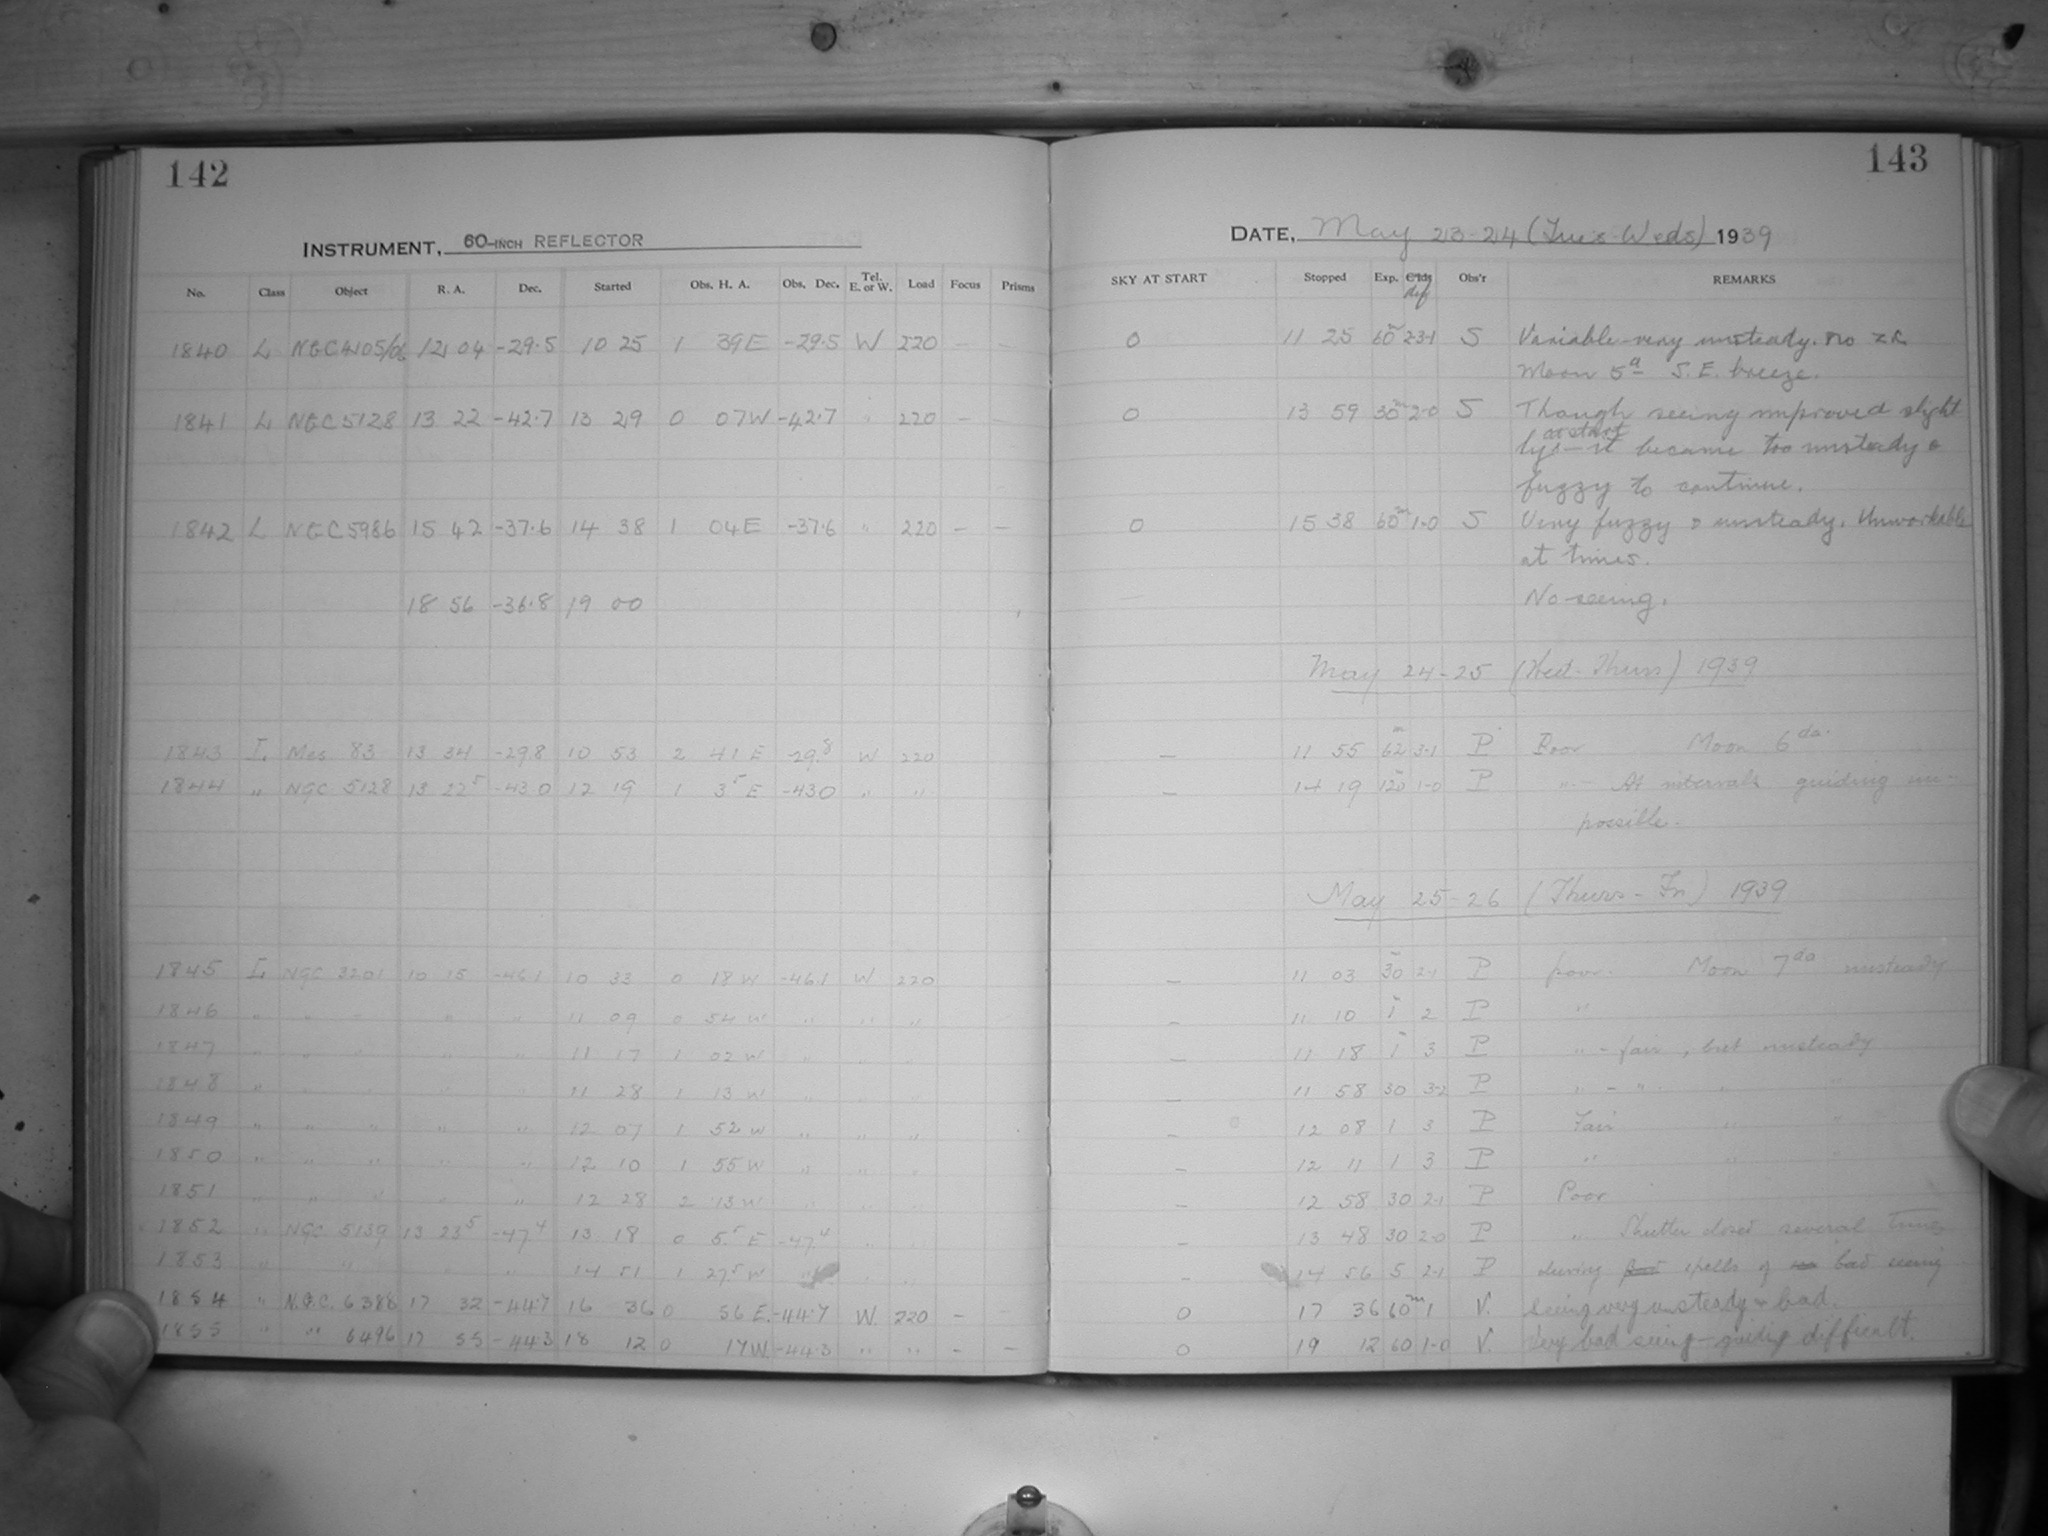 142
INSTRUMENT, 60-INCH REFLECTOR
No. Class Object R. A. Dec. Started Obs. H. A. Obs. Dec. Tel. E. or W. Load Focus Prisms
1840 L NGC4105/06 12 04 -29.5 10 25 1 39E -29.5 W 220 - -
1841 L NGC5128 13 22 -42.7 13 29 0 07W -42.7 " 220 -
1842 L NGC5986 15 42 -37.6 14 38 1 04E -37.6 " 220 - -
18 56 -36.8 19 00
1843 L Mes 83 13 34 -29.8 10 53 2 41 E -29.8 W 220
1844 " NGC 5128 13 22 5 -43 0 12 19 1 3 5 E -43 0 " "
1845 L NGC 3201 10 15 -46.1 10 33 0 18 W -46.1 W 220
1846 " " " " " 11 09 0 54 W " " "
1847 " " " " " 11 17 1 02 W " " "
1848 " " " " " 11 28 1 13 W " " "
1849 " " " " " 12 07 1 52 W " " "
1850 " " " " " 12 10 1 55 W " " "
1851 " " " " " 12 28 2 13 W " " "
1852 " NGC 5139 13 23 5 -47 4 13 18 0 5.5 E -47.4 " "
1853 " " " " 14 51 1 27 5 W " " "
1854 " N.G.C. 6388 17 32 -44.7 16 36 0 56 E. -44.7 W. 220 - -
1855 " " 6496 17 55 -44.3 18 12 0 17W. -44.3 " " - -
143
DATE, May 23-24 (Tues-Weds) 1939
SKY AT START Stopped Exp. Clds def Obs'r REMARKS
0 11 25 60m 2-3-1 S Variable-very unsteady. no
Moon 5d S.E. breeze.
0 13 59 30m 2-0 S Though seeing improved slight
at start
ly - it became too unsteady &
fuzzy to continue.
0 15 38 60m 1-0 S Very fuzzy & unsteady. Unworkable
at times.
No seeing.
May 24-25 (Wed-Thurs) 1939
- 11 55 62m 3-1 P Poor Moon 6da.
- 14 19 120m 1-0 P " - At intervals guiding im-
possible.
May 25-26 (Thurs-Fri) 1939
- 11 03 30m 2-1 P poor. Moon 7da unsteady
- 11 10 1m 2 P "
- 11 18 1m 3 P " - fair, but unsteady
- 11 58 30 3-2 P " - " " "
- 12 08 1 3 P Fair " "
- 12 11 1 3 P " " "
- 12 58 30 2-1 P Poor
- 13 48 30 2-0 P " Shutter closed several times
- 14 56 5 2-1 P during spells of bad seeing
0 17 36 60m 1 V. Seeing very unsteady & bad.
0 19 12 60 1-0 V. Very bad seeing - guiding difficult.